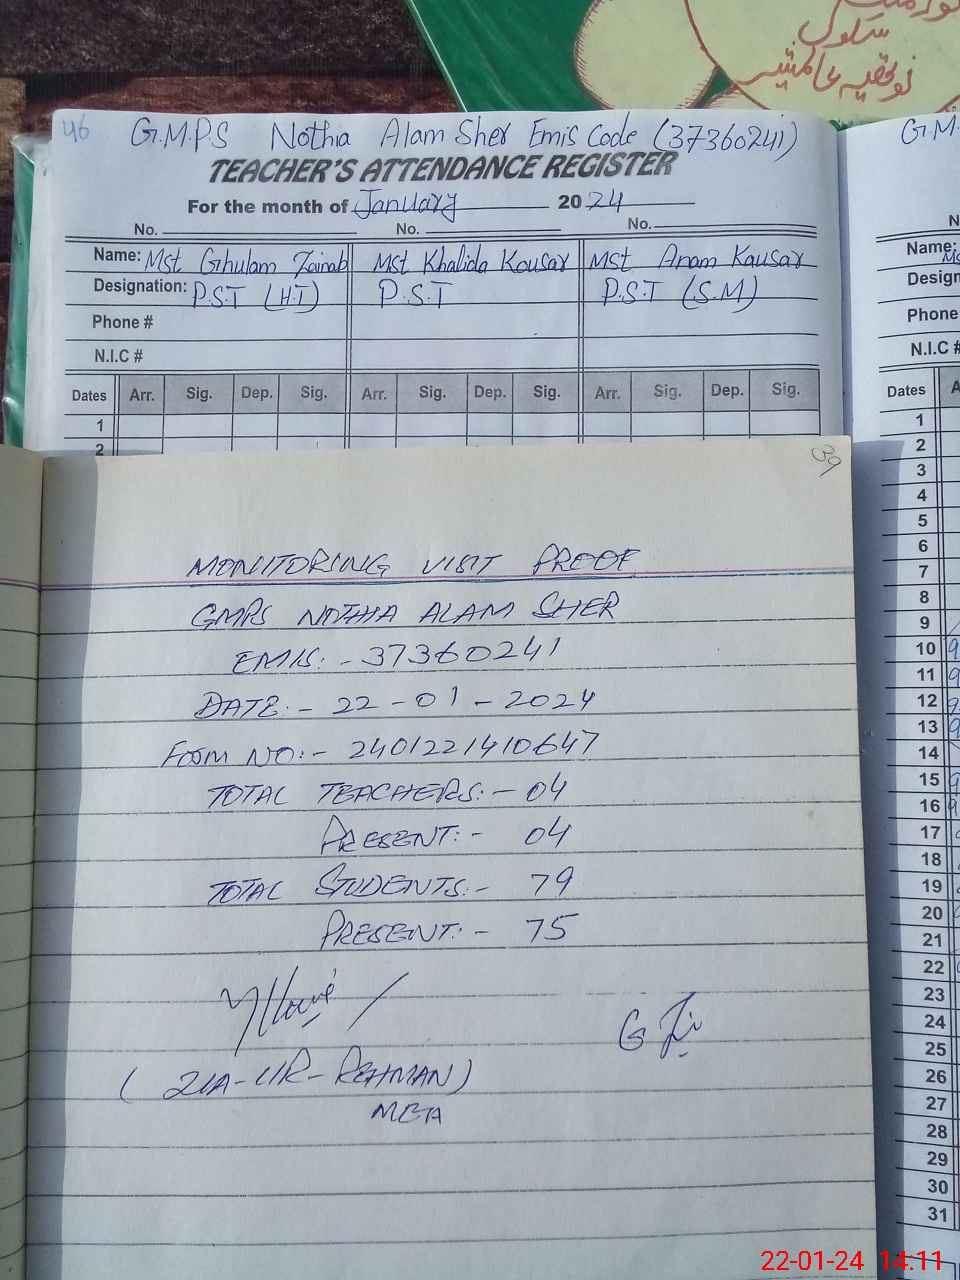 سلوک
46 G.M.P.S Nothia Alam Sher Emis Code (37360241)
TEACHER'S ATTENDANCE REGISTER
For the month of January 2024
No. No. No.
Name: Mst Ghulam Zainab Mst Khalida Kousar Mst Anam Kausar
Designation: P.S.T (H.T) P.S.T P.S.T (S.M)
Phone #
N.I.C #
Dates Arr. Sig. Dep. Sig. Arr. Sig. Dep. Sig. Arr. Sig. Dep. Sig.
1
2
G.M.
N
Name: Ms
Design
Phone
N.I.C #
Dates A
1
2
3
4
5
6
7
8
9
10 9
11 9
12 9
13 9
14
15 9
16 9
17
18
19
20
21
22
23
24
25
26
27
28
29
30
31
39
MONITORING VISIT PROOF
GMPS NOTHIA ALAM SHER
EMIS:-37360241
DATE:- 22-01-2024
FORM NO:- 2401221410647
TOTAL TEACHERS:- 04
PRESENT:- 04
TOTAL STUDENTS:- 79
PRESENT:- 75
(ZIA-UR-REHMAN)
MEA
22-01-24 14:11